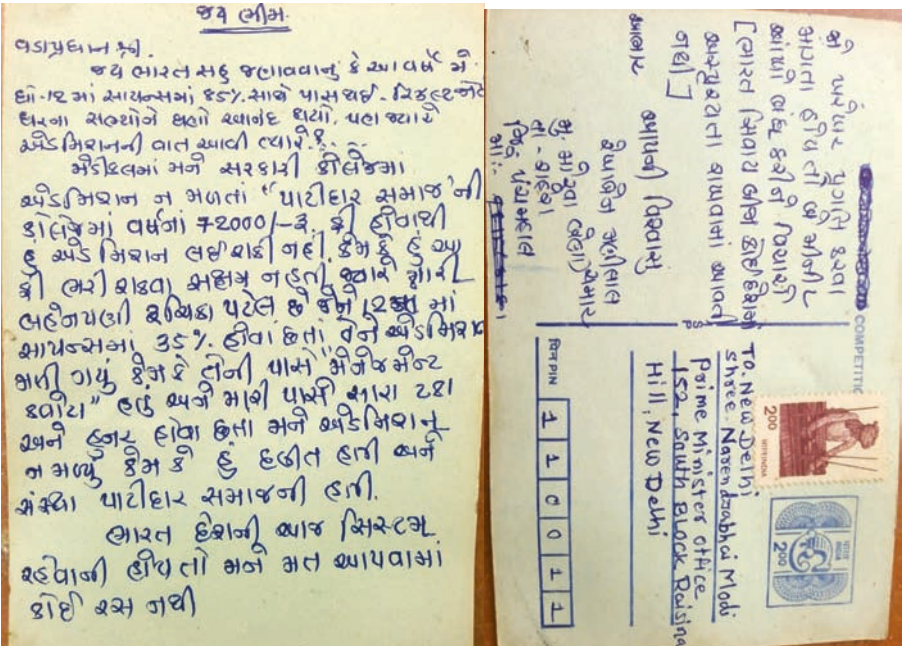 જય ભીમ
વડાપ્રધાન શ્રી.
જય ભારત સહ જણાવવાનું કે આ વર્ષે મે
ધો-12 માં સાયન્સમાં 85% સાથે પાસ થઈ. રિઝલ્ટ જોઈ
ઘરના સભ્યોને ઘણો આનંદ થયો. પણ જ્યારે
એડમિશનની વાત આવી ત્યારે?
મેડીકલમાં મને સરકારી કોલેજમાં
એડમિશન ન મળતાં "પાટીદાર સમાજ"ની
કોલેજમાં વર્ષનાં 72000/-રૂ. ફી હોવાથી
હું એડમિશન લઈ શકી નહી. કેમ કે હું આ
ફી ભરી શકવા સક્ષમ નહતી, જ્યારે મારી
બહેનપણી રુચિકા પટેલ છે જેને 12 માં
સાયન્સમાં 35% હોવા છતાં તેને એડમિશન
મળી ગયું કેમ કે તેની પાસે "મેનેજમેન્ટ
ક્વોટા" હતું અને મારી પાસે સારા ટકા
અને હુનર હોવા છતા મને એડમિશન
ન મળ્યુ કેમ કે હું દલીત હતી અને
સંસ્થા પાટીદાર સમાજની હતી.
ભારત દેશની આજ સિસ્ટમ
રહેવાની હોય તો મને મત આપવામાં
કોઈ રસ નથી
જે ખરેખર પ્રગતિ કરવા
માગતા હોય તો બે મીનીટ
આંખો બંધ કરીને વિચારો
[ભારત સિવાય બીજા કોઈ દેશમાં
અસ્પૃશ્યતા રાખવામાં આવતી
નથી]
આભાર
આપની વિશ્વાસુ
મુ. મોરવા (રેણા)
તા-શહેરા
જિ. પંચમહાલ
COMPETITI
To, New Delhi
Shree Narendrabhai Modi
Prime Minister office
152, South Block Raisina
Hill, New Delhi
पिन PIN 110011
200
भारत INDIA
200